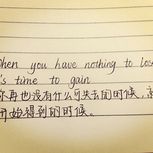 When you have nothing to lose
's time to gain
你再也没有什么可失去的时候,
开始得到的时候。